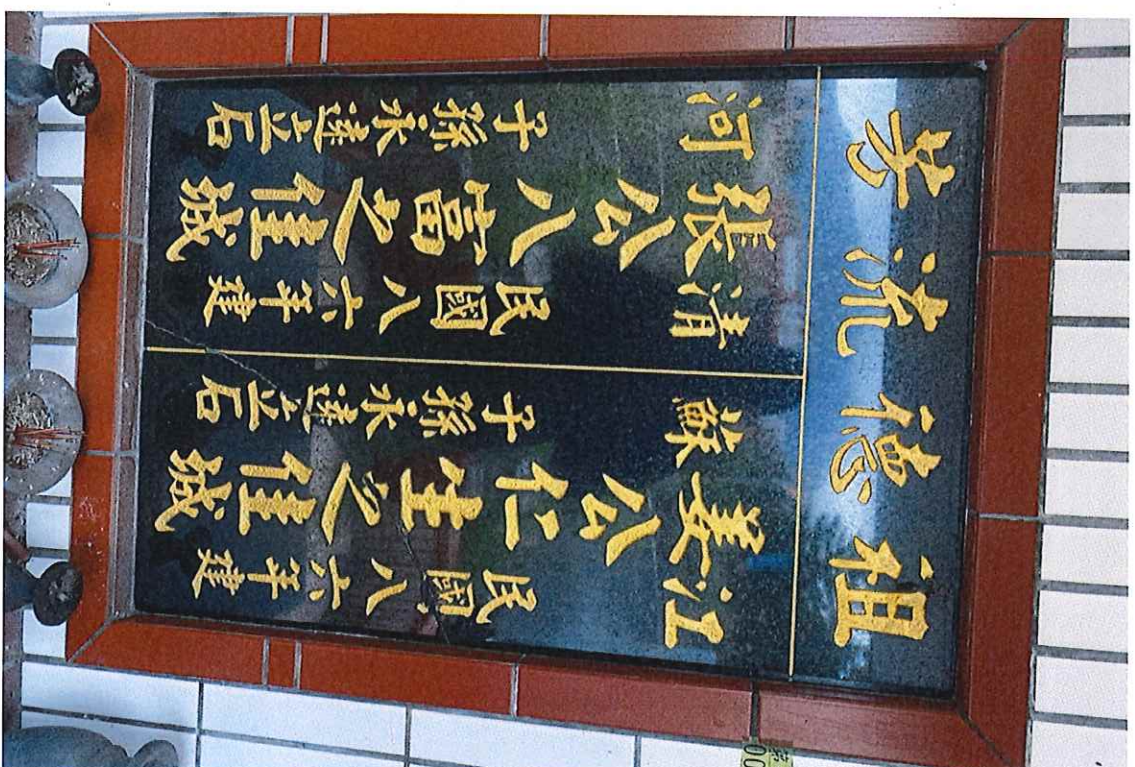 祖德流芳
江蘇
民國八六年建
姜公仁生之佳城
子孫永遠立石
清河
民國八六年建
張公八富之佳城
子孫永遠立石